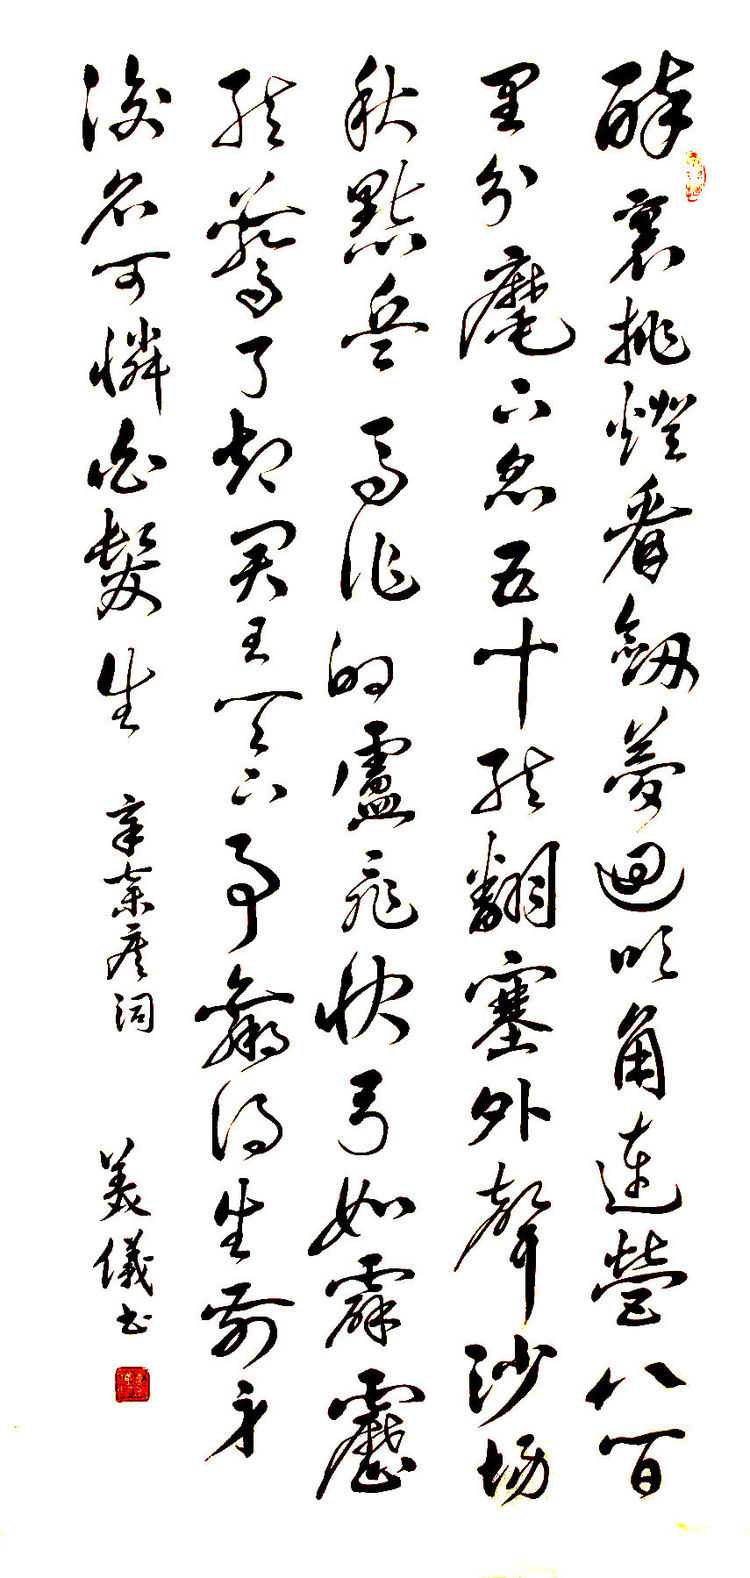 醉裏挑燈看劔夢迴吹角連營八百
里分麾下炙五十絃翻塞外聲沙場
秋點兵馬作的盧飛快弓如霹靂
絃驚了却君王天下事贏得生前身
後名可憐白髮生
辛棄疾詞
美儀書